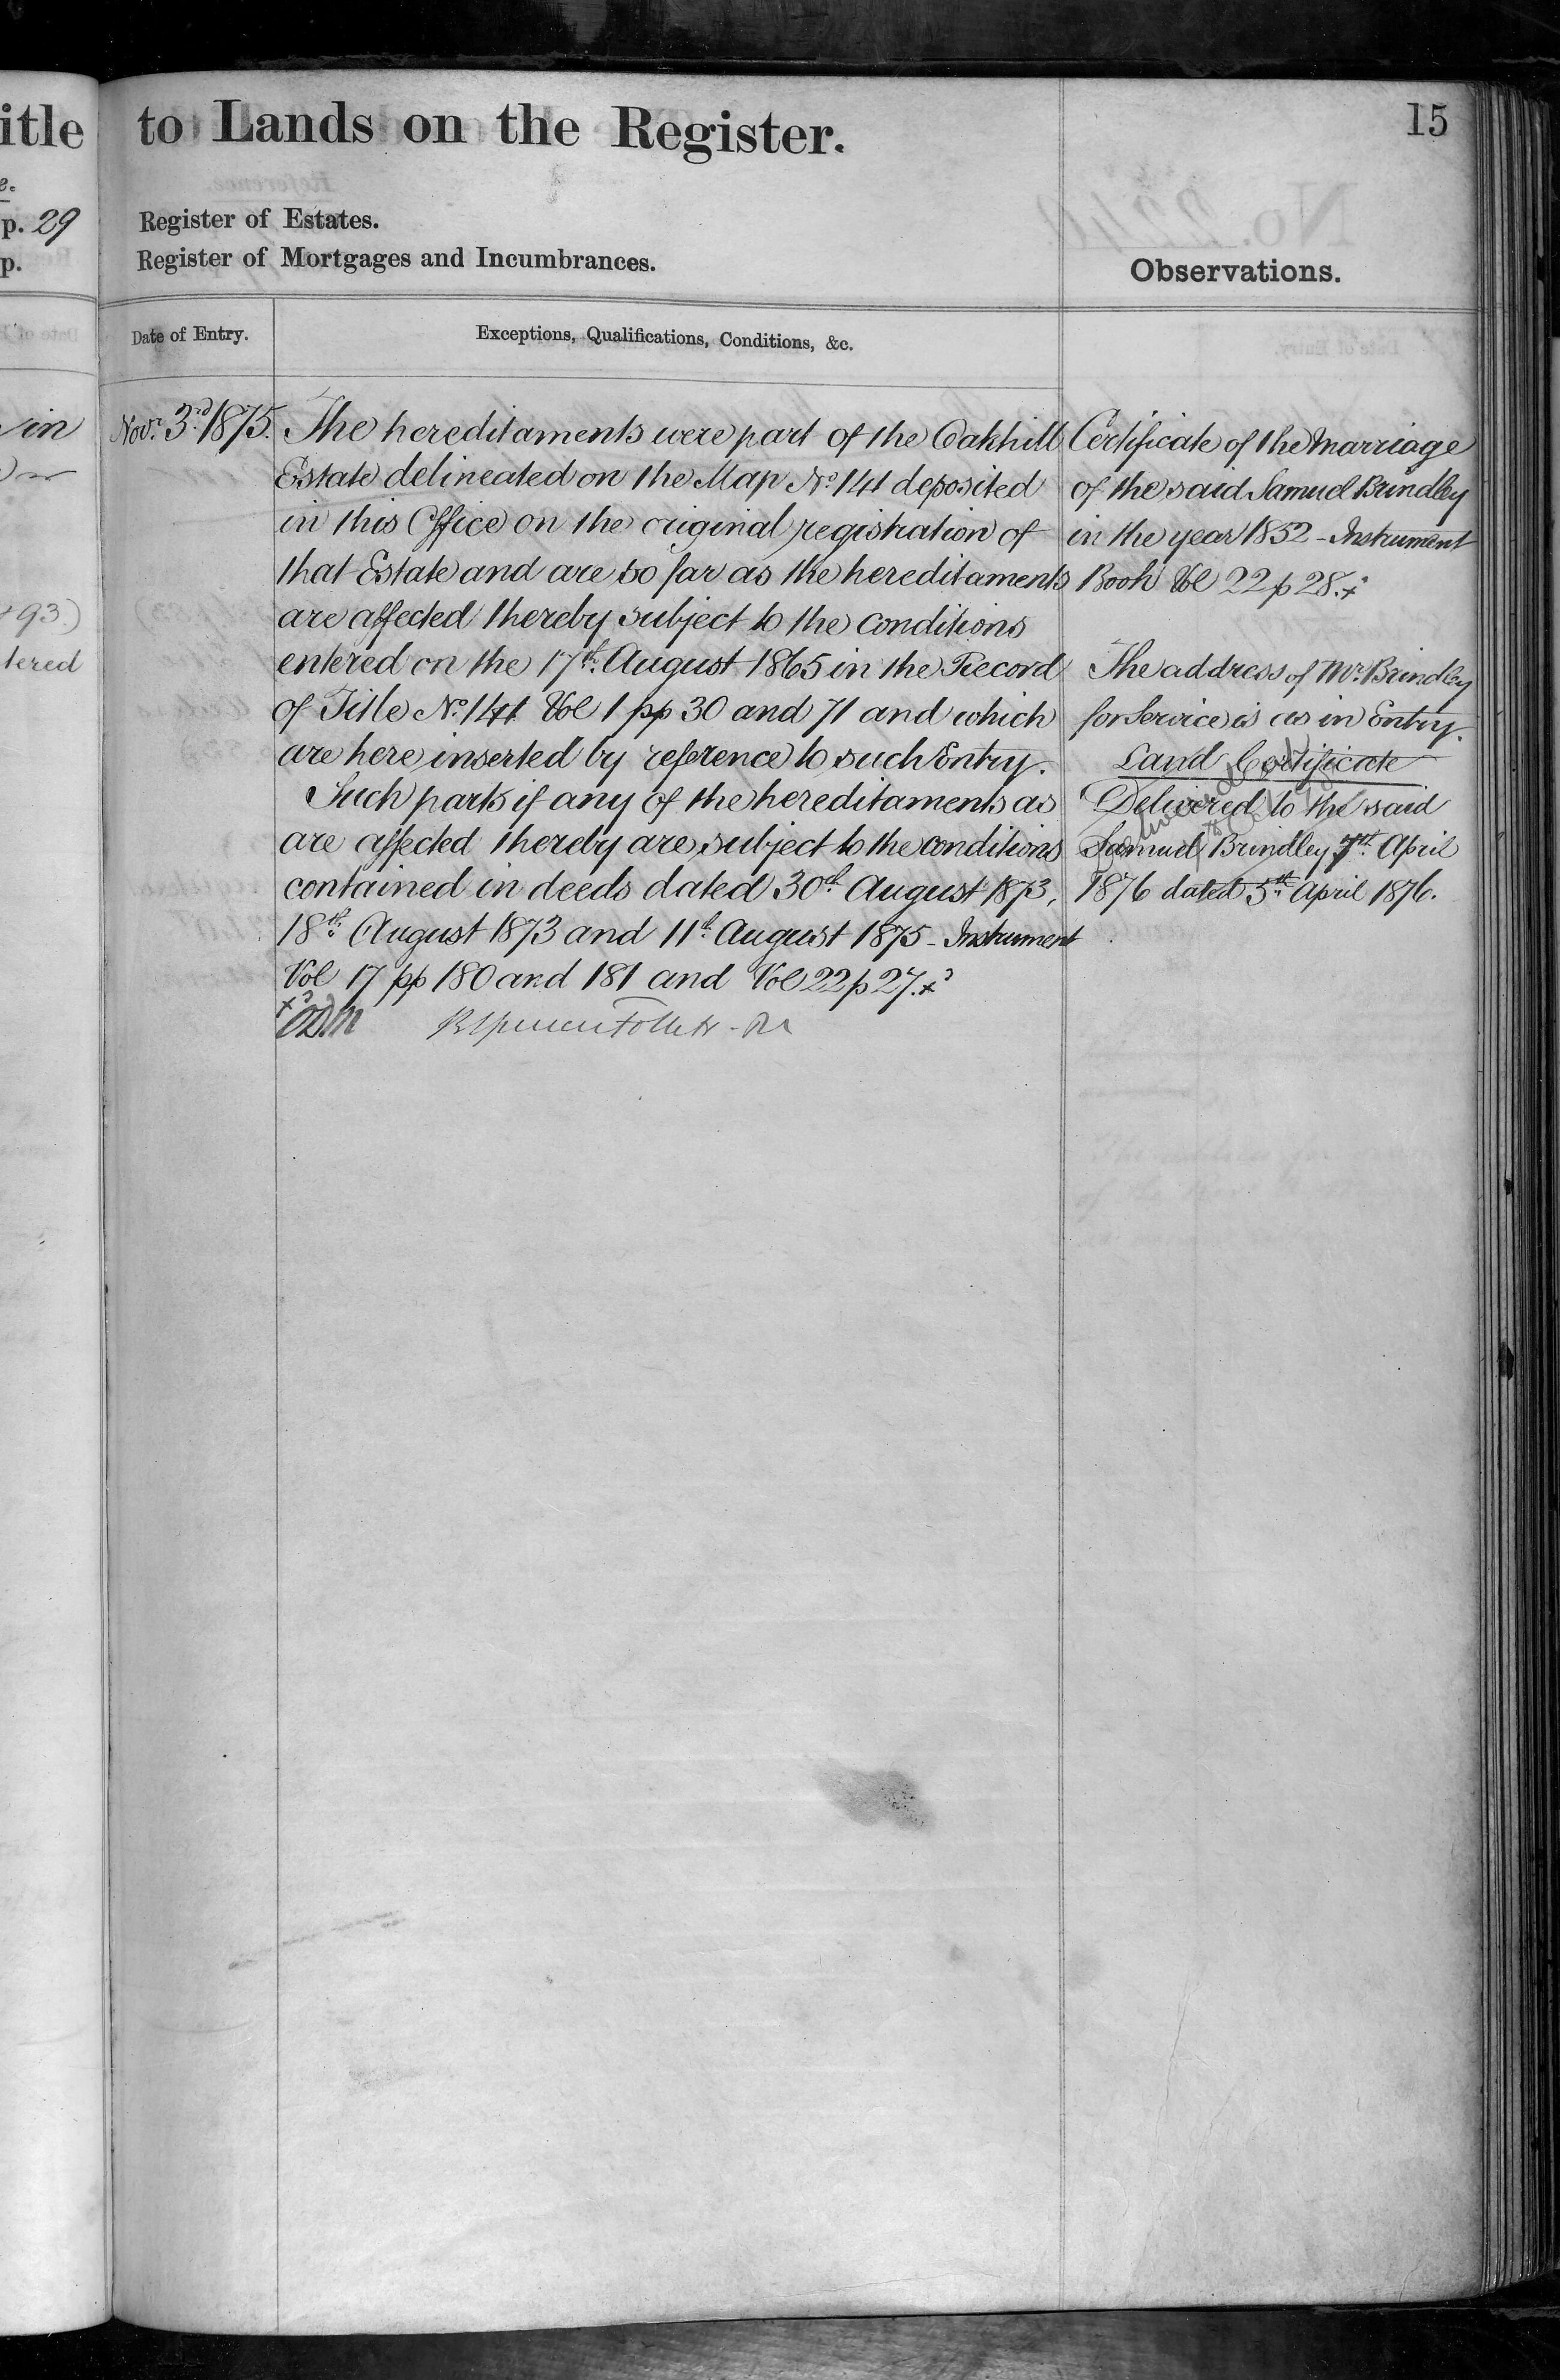 itle
e.
p. 29
p.
in
+93.)
tered
to Lands on the Register.
15
Register of Estates.
Register of Mortgages and Incumbrances.
Observations.
Date of Entry.
Exceptions, Qualifications, Conditions, &c.
Novr. 3rd 1875.
The hereditaments were part of the Oakhill
Estate delineated on the Map No. 141 deposited
in this Office on the original registration of
that Estate and are so far as the hereditaments
are affected thereby subject to the conditions
entered on the 17th August 1865 in the Record
of Title No. 141 Vol 1 pp 30 and 71 and which
are here inserted by reference to such Entry.
Such parts if any of the hereditaments as
are affected thereby are subject to the conditions
contained in deeds dated 30th August 1873,
18th August 1873 and 11th August 1875 - Instrument
Vol 17 pp 180 and 181 and Vol 22 p 27.
Certificate of the Marriage
of the said Samuel Brindley
in the year 1852 - Instrument
Book Vol 22 p 28.
The address of Mr. Brindley
for Service is as in Entry.
Land Certificate
Delivered to the said
Samuel Brindley 7th April
1876 dated 5th April 1876.